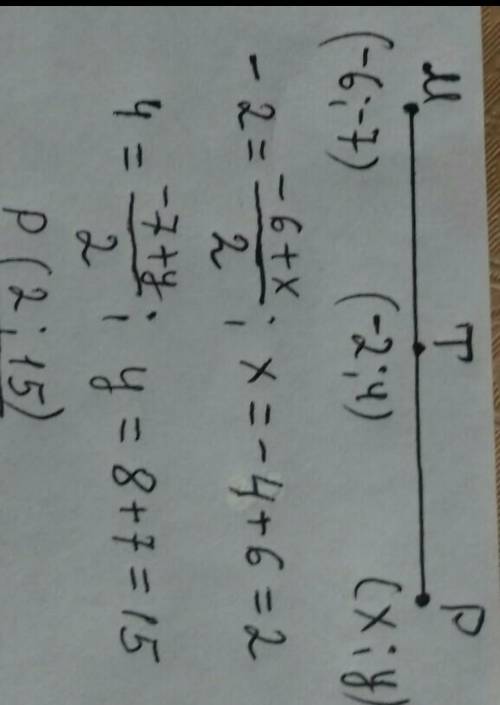 M T P
(-6;-7) (-2;4) (x;y)
-2 = -6+x/2 ; x = -4+6 = 2
4 = -7+y/2 ; y = 8+7 = 15
P (2;15)